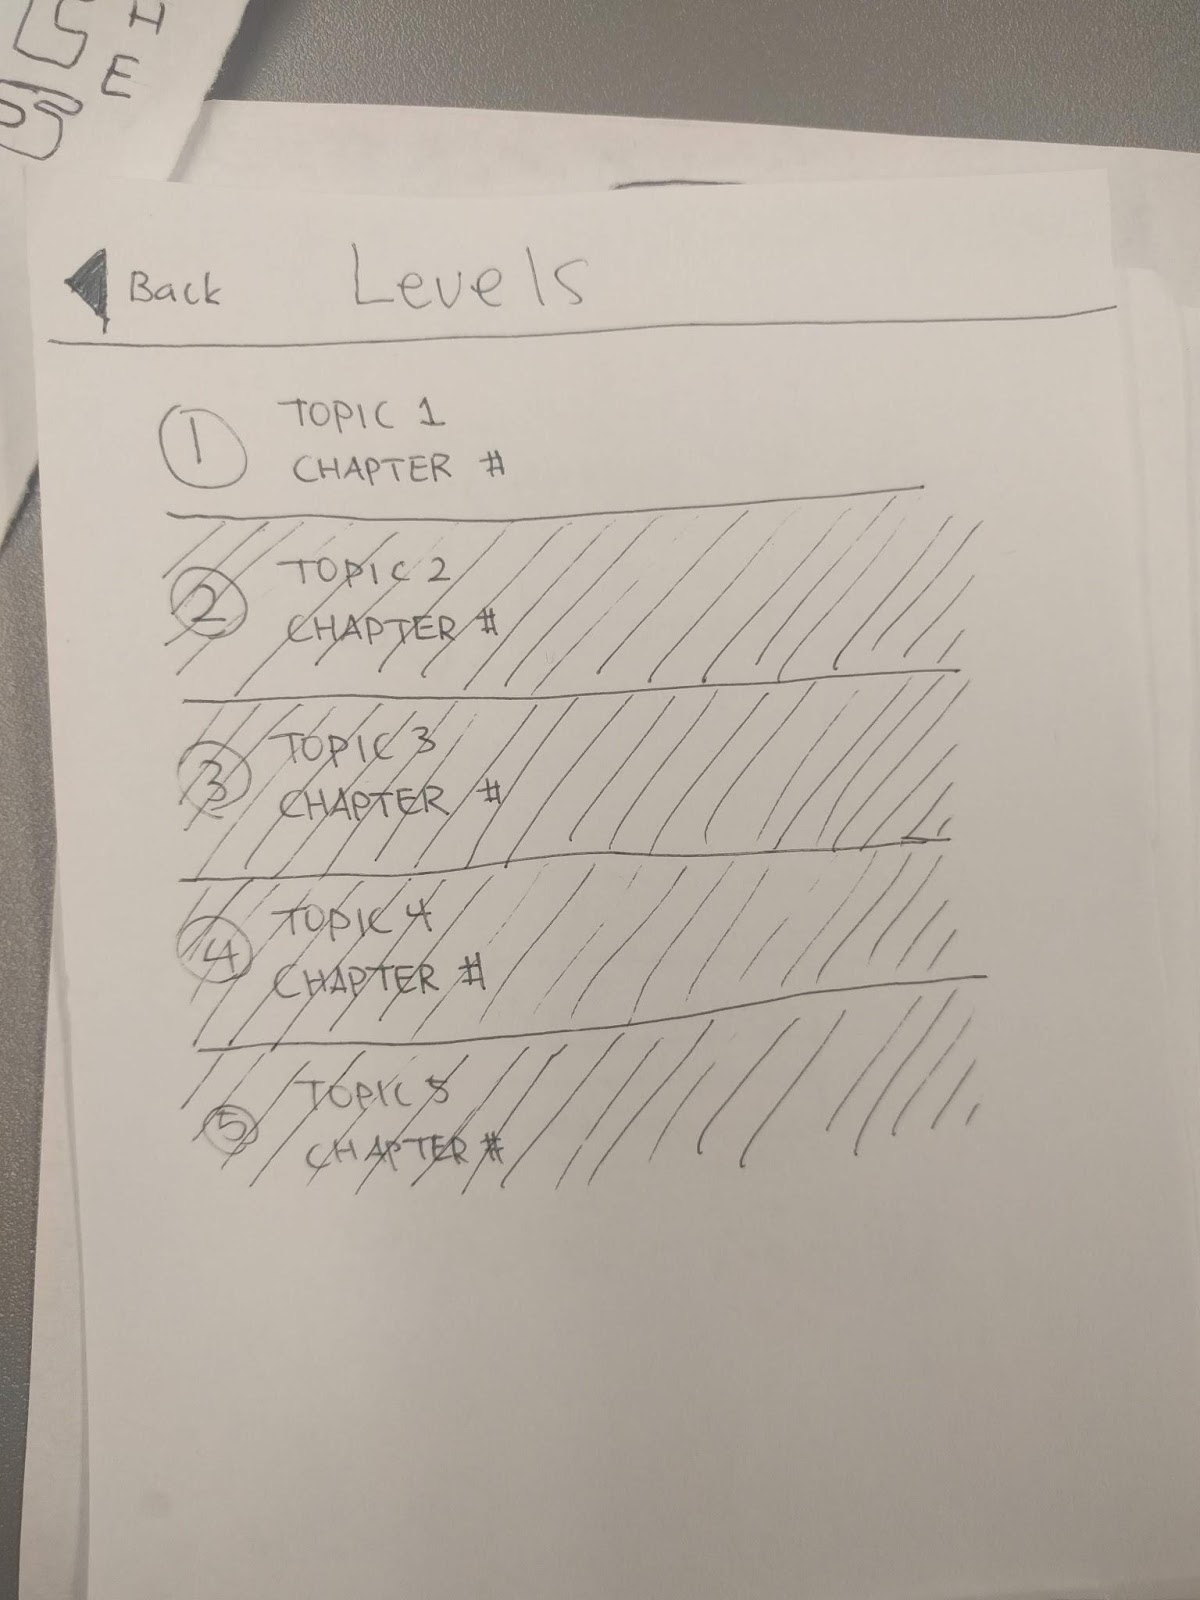 H
E
Back Levels
1 TOPIC 1
CHAPTER #
2 TOPIC 2
CHAPTER #
3 TOPIC 3
CHAPTER #
4 TOPIC 4
CHAPTER #
5 TOPIC 5
CHAPTER #